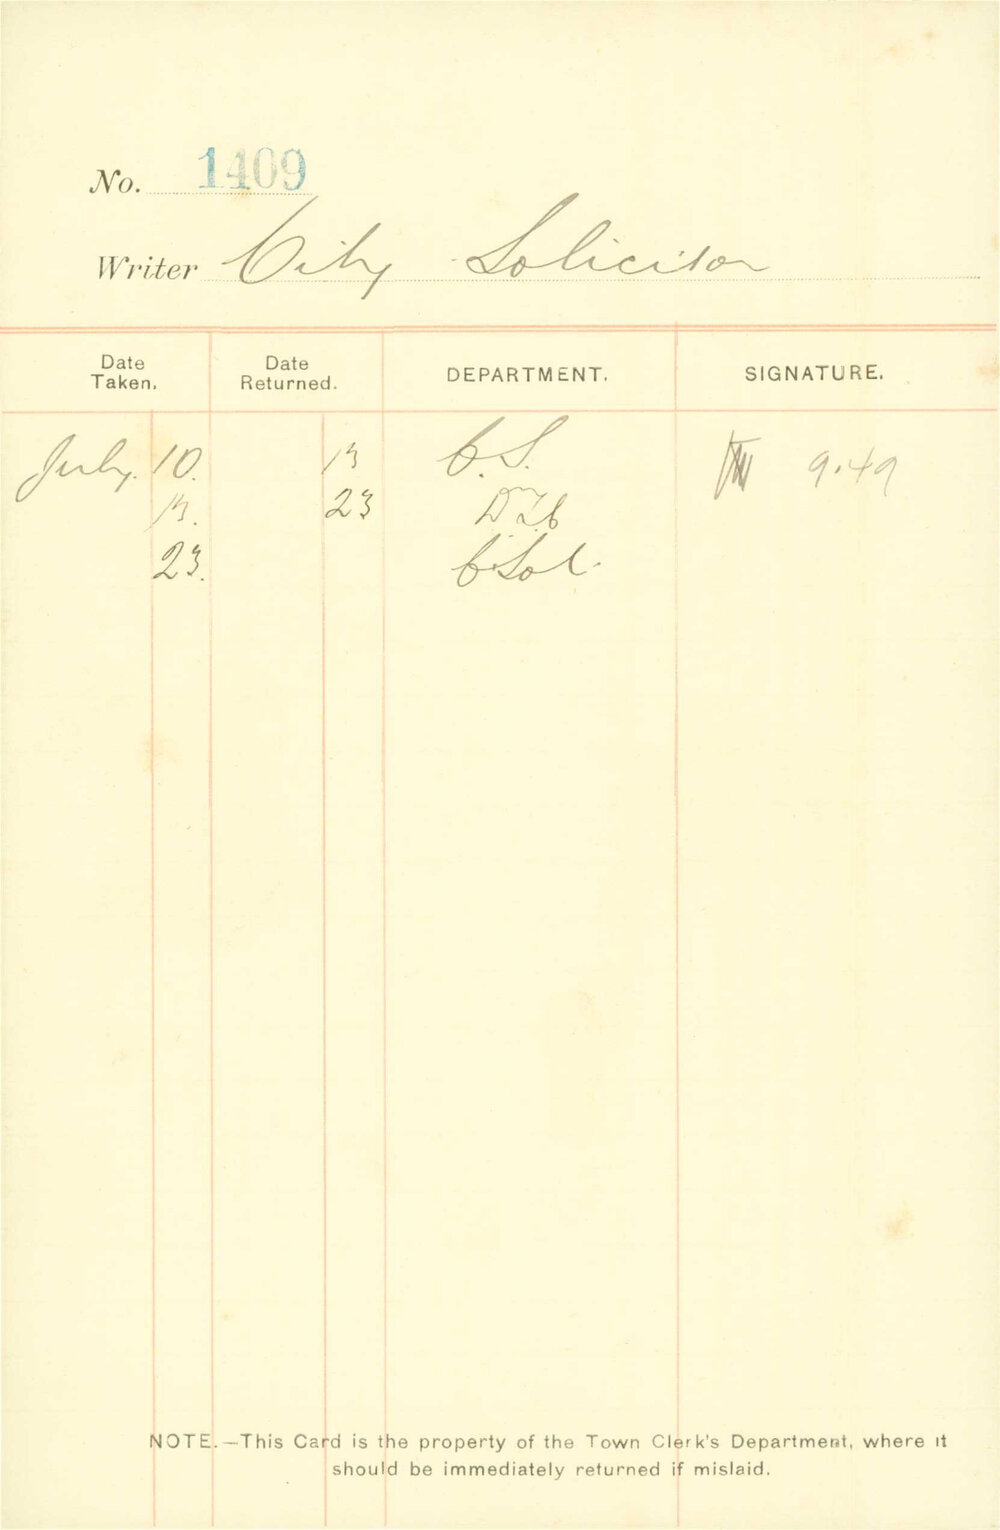 No. 1409
Writer City Solicitor
Date Taken. Date Returned. DEPARTMENT. SIGNATURE.
July. 10. 13 C.S. 9.49
13. 23
23. C. Sol.
NOTE.—This Card is the property of the Town Clerk's Department, where it
should be immediately returned if mislaid.